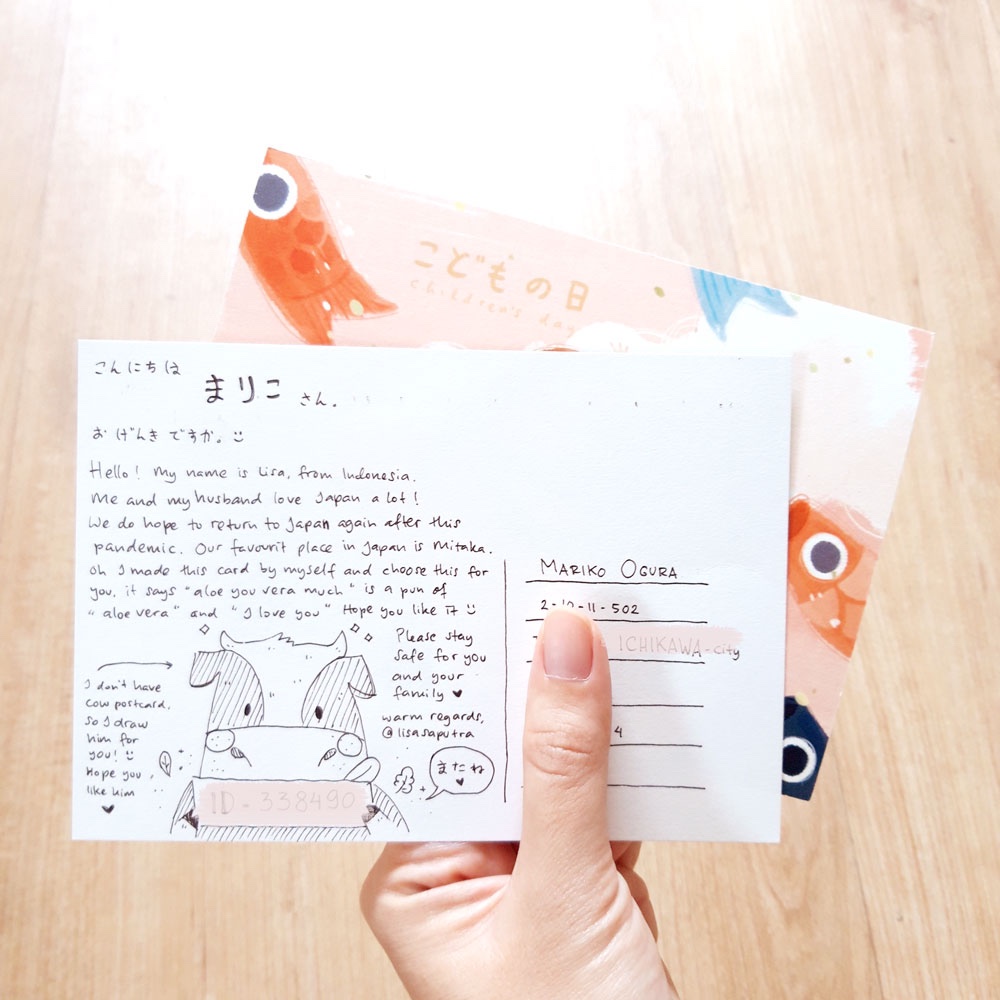 こどもの日
children's day
こんにちは
まりこ さん.
おげんきですか。
Hello! My name is Lisa, from Indonesia.
Me and my husband love Japan a lot!
We do hope to return to Japan again after this
pandemic. Our favourit place in Japan is Mitaka.
Oh I made this card by myself and choose this for
you, it says "aloe you vera much" is a pun of
"aloe vera" and "I love you" Hope you like it
I don't have
cow postcard,
so I draw
him for
you!
Hope you
like him
Please stay
safe for you
and your
family
warm regards,
@lisasaputra
またね
ID-338490
MARIKO OGURA
11-502
ICHIKAWA-city
4